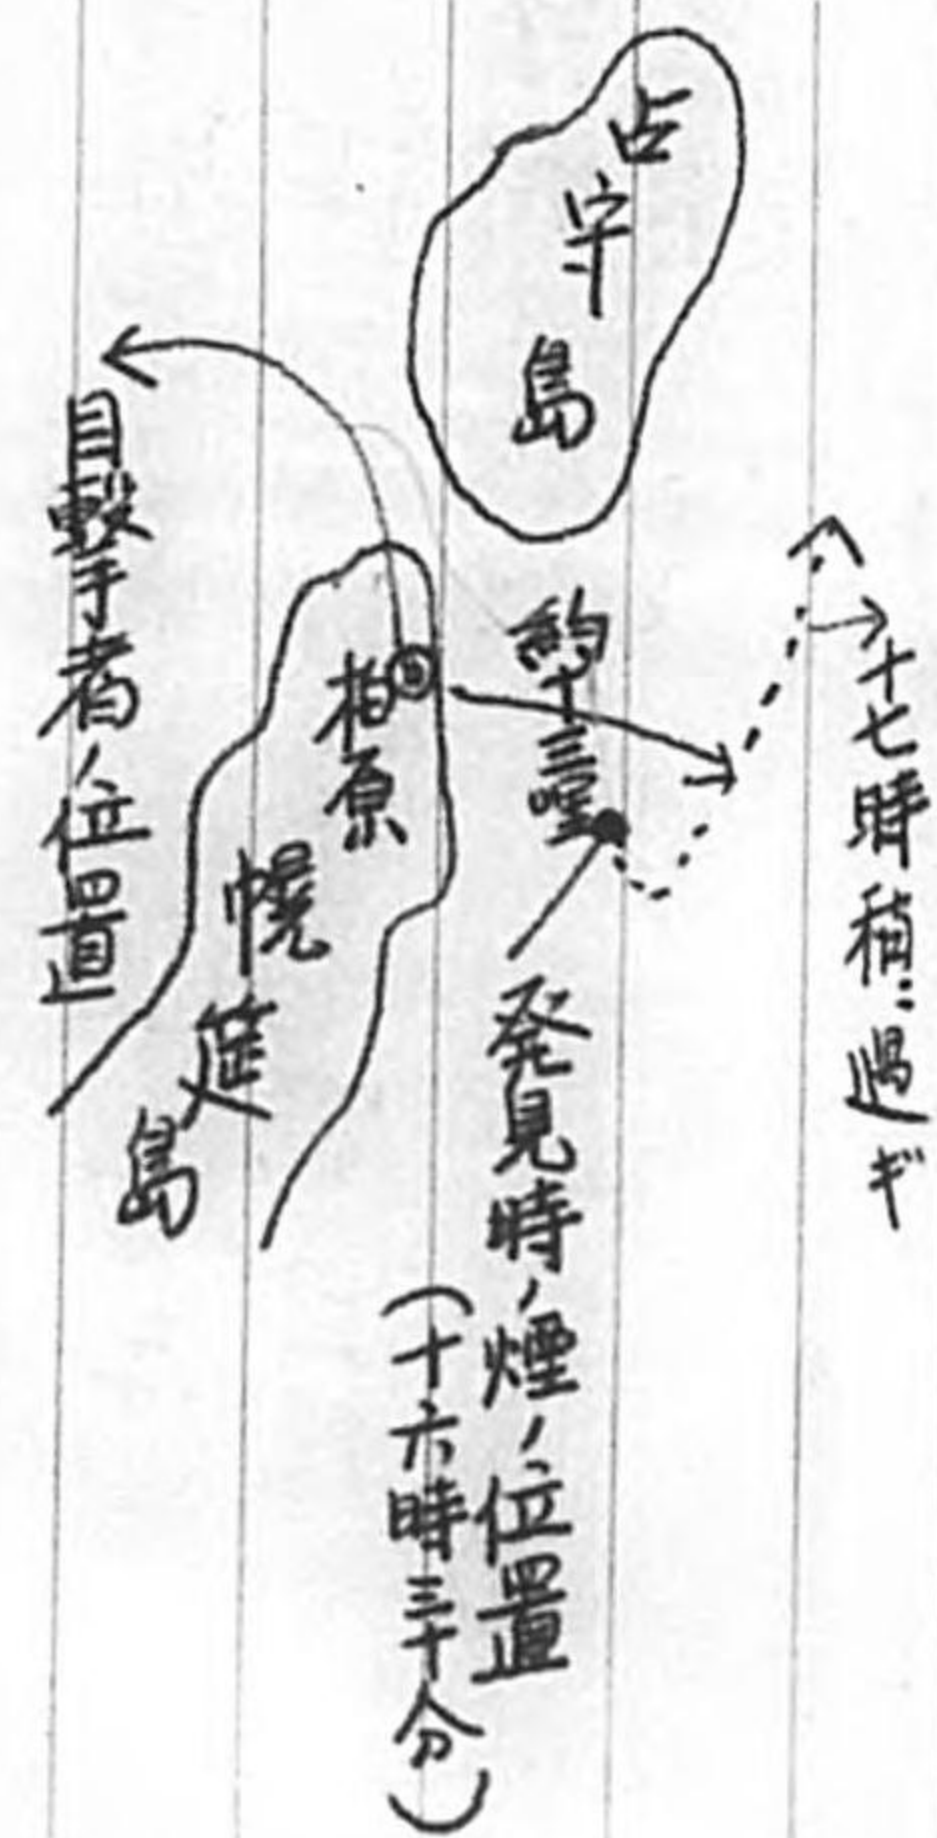 十七時稍ニ過ギ
占守島
約十三哩
発見時ノ煙ノ位置
(十六時三十分)
柏原
幌筵島
目撃者ノ位置